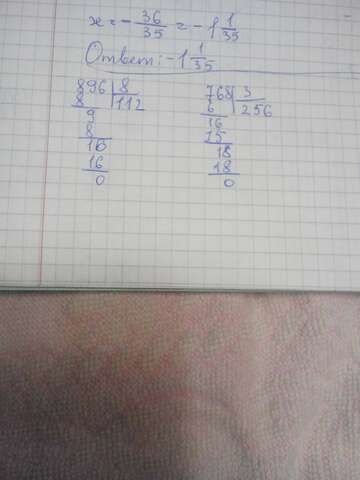 x = -36/35 = -1 1/35
Ответ: -1 1/35
896 | 8
8 112
9
8
16
16
0
768 | 3
6 256
16
15
18
18
0